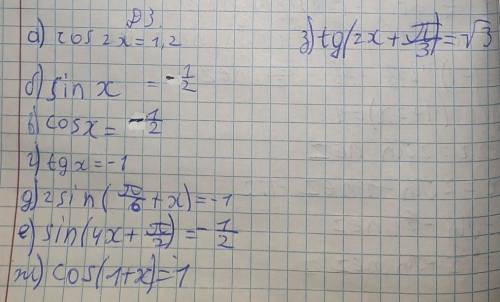 ДЗ
а) 2cos2x = 1,2
б) sin x = -1/2
в) cosx = -1/2
г) tgx = -1
д) 2sin(π/6 + x) = -1
е) sin(4x + π/2) = -1/2
ж) cos(1+x) = 1
з) tg(2x + π/3) = √3